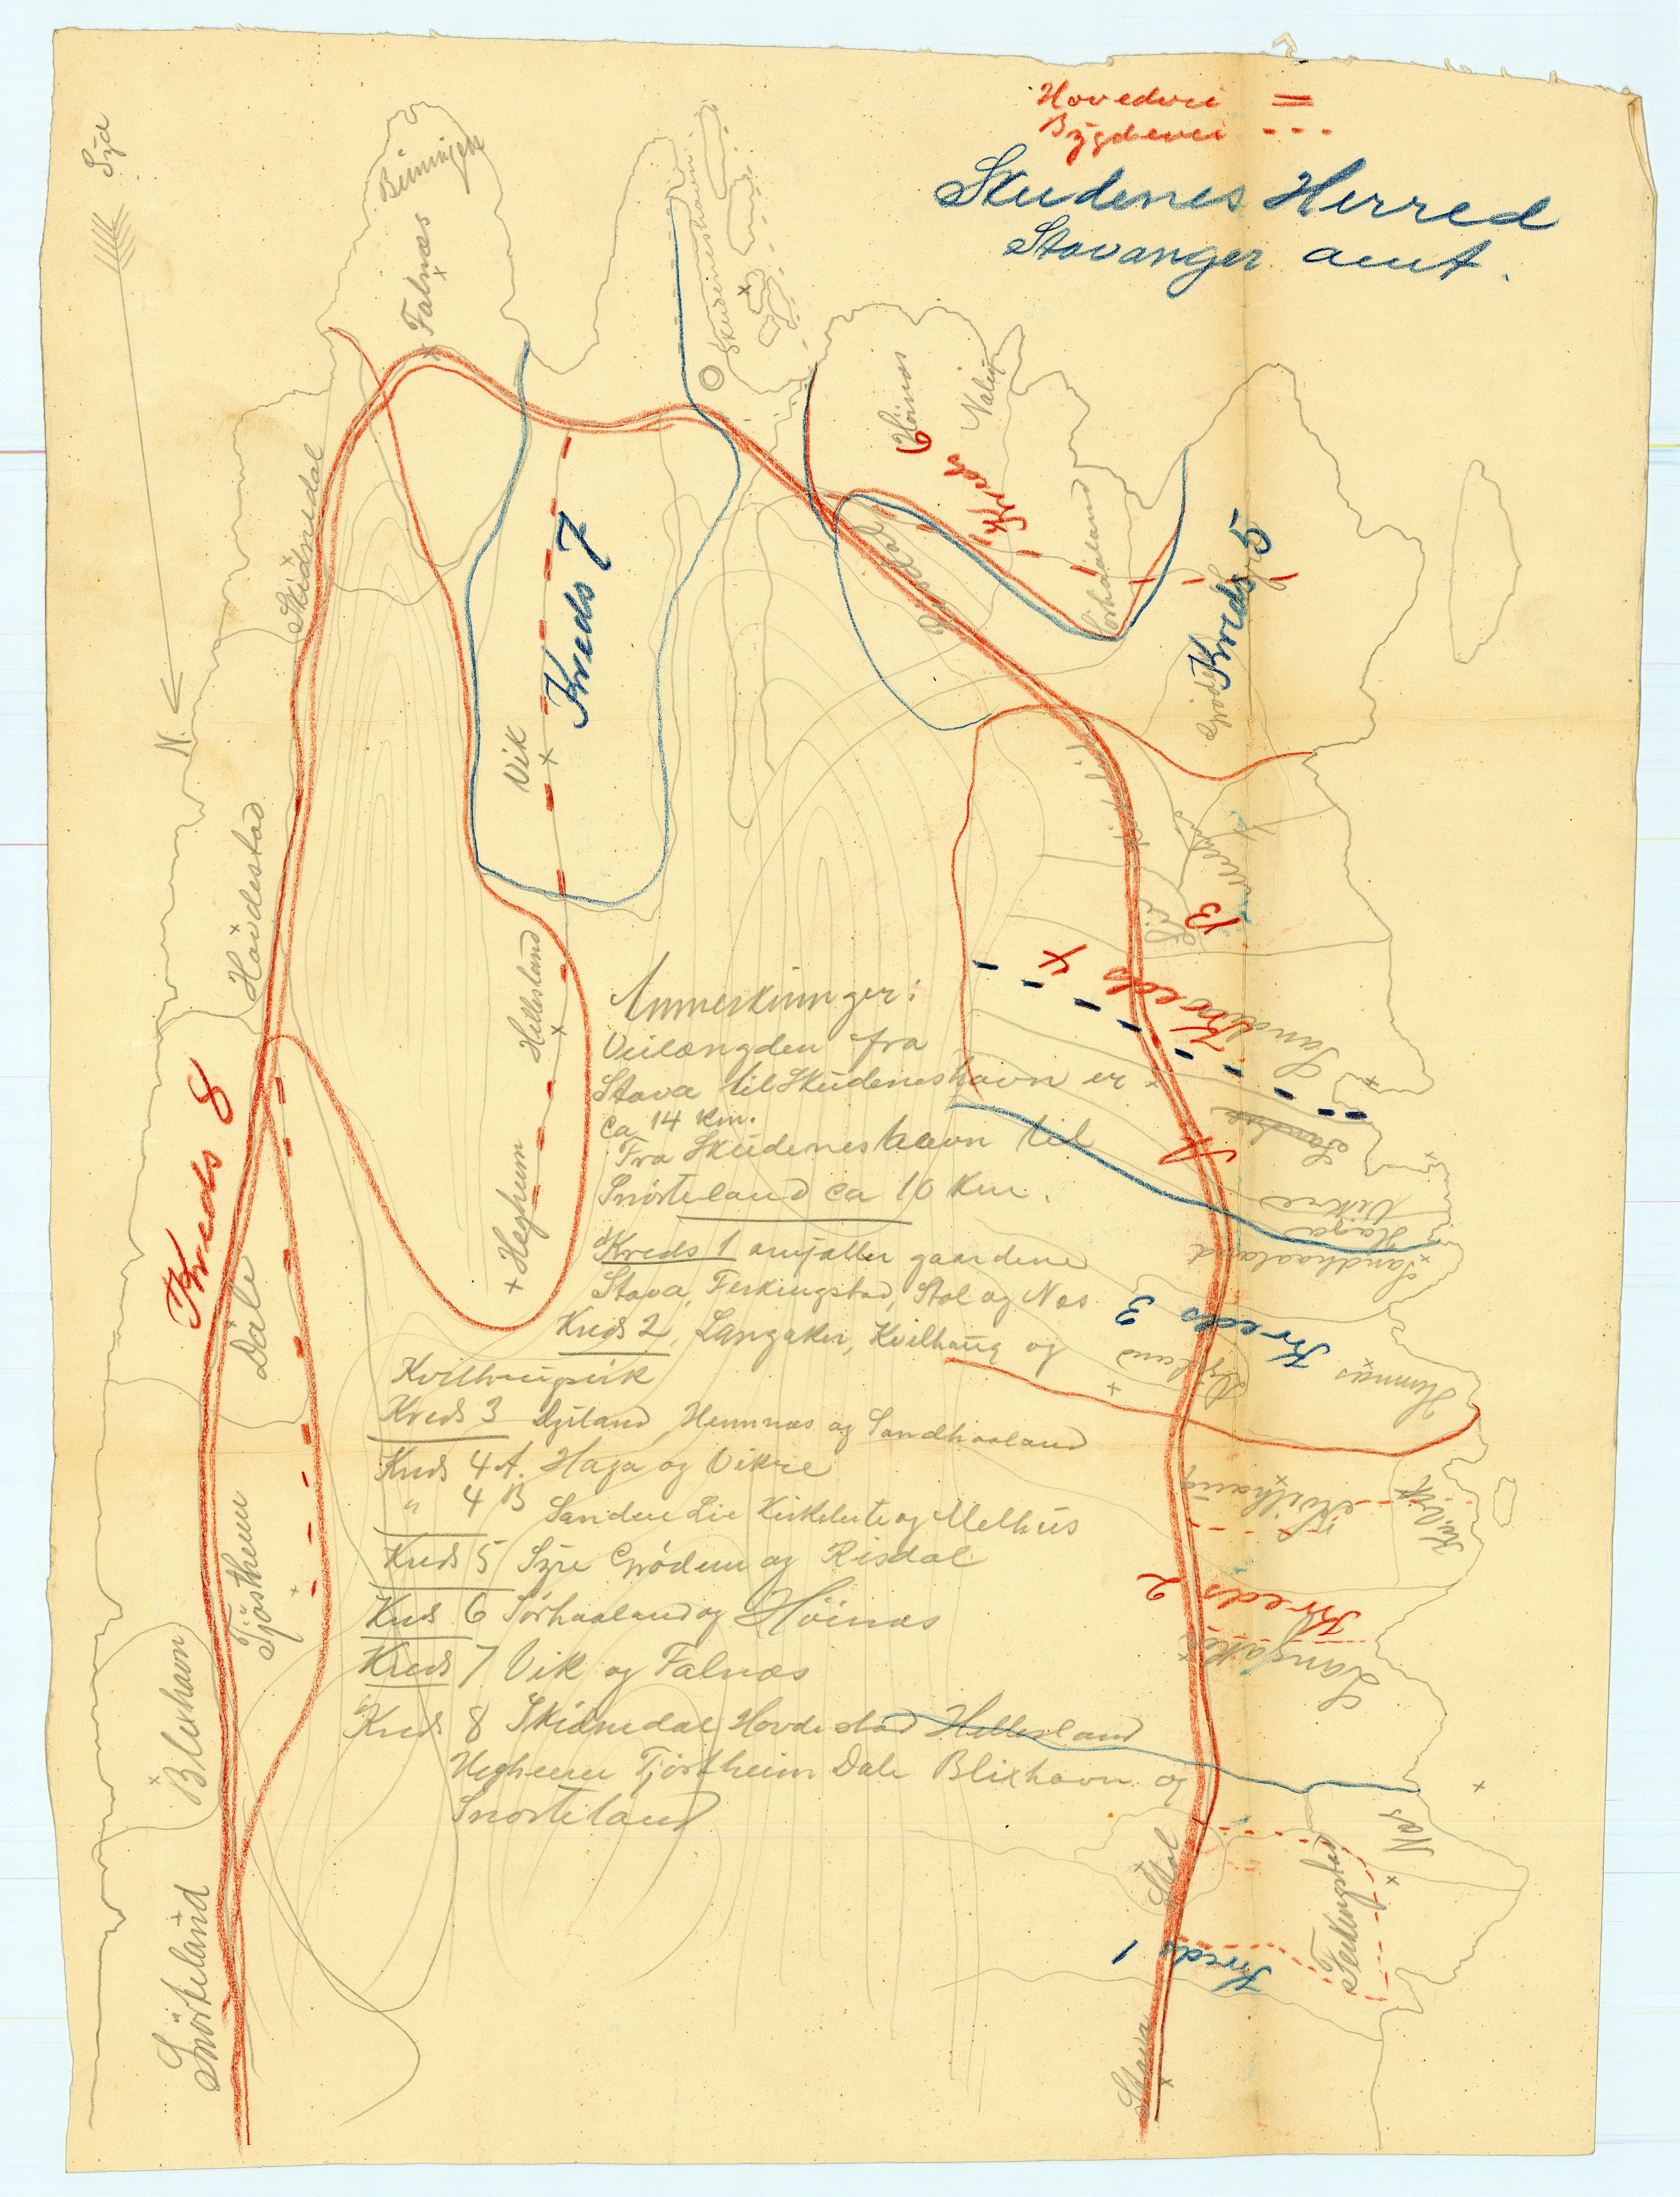 Hovedvei =
Bygdevei ---
Skudenes Herred
Stavanger amt.
Syd
N.
Falnæs
Skudeneshavn
Høinæs
Kreds 6
Kreds 5
Sørhaaland
Skidnedal
Kreds 7
Vik
Hovdestad
Hillesland
Hegheim
Kreds 8
Dale
Tjøstheim
Blixhavn
Snørteland
Lie
B
Kreds 4
Sande
A
Vikre
Haga
Sandhaaland
Kreds 3
Hemnæs
Kvilhaug
Kreds 2
Langaker
Næs
Stol
Ferkingstad
Kreds 1
Stava
Anmerkninger:
Veilængden fra
Stava til Skudeneshavn er
ca 14 km.
Fra Skudeneshavn til
Snørteland ca 10 km.
Kreds 1 omfatter gaardene
Stava, Ferkingstad, Stol og Næs
Kreds 2, Langaker, Kvilhaug og
Kvilhaugvik
Kreds 3 Hemnæs og Sandhaaland
Kreds 4 A. Haga og Vikre
" 4 B Sande Lie Kirkeleite og Melhus
Kreds 5 Syre Grødem og Risdal
Kreds 6 Sørhaaland og Høinæs
Kreds 7 Vik og Falnæs
Kreds 8 Skidnedal Hovdestad Hillesland
Hegheim Tjøstheim Dale Blixhavn og
Snørteland